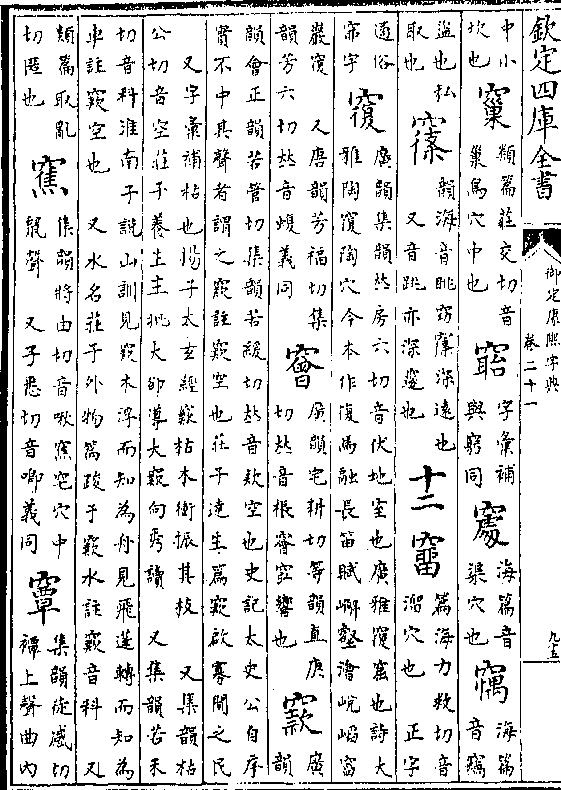 欽定四庫全書
御定康熙字典
卷二十一
九五
中小
坎也 窼 類篇莊交切音巢鳥穴中也 字彙補與窮同 海篇音渠穴也 海篇音
濫也私取也 韻海音眺窈窱深遠也又音跳亦深邃也 十二 窷 篇海力救切音溜穴也 正字
通俗字 𥨍 廣韻集韻𠀤房六切音伏地室也廣雅窟也詩大雅陶陶穴今本作復馬融長笛賦嶰壑澮峴㟮窞
巖 又唐韻芳福切集韻芳六切𠀤音蝮義同 廣韻宅耕切等韻直庚切𠀤音棖響也 窾 廣韻
韻會正韻苦管切集韻苦緩切𠀤音欵空也史記太史公自序實不中其聲者謂之窾註窾空也莊子達生篇窾啟寡聞之民
又字彙補枯也揚子太玄經窾枯木衝振其枝 又集韻枯公切音空莊子養生主批大郤導大窾向秀讀 又集韻苦禾
切音科淮南子說山訓見窾木浮而知為舟見飛蓬轉而知為車註窾空也 又水名莊子外物篇踆于窾水註窾音科 又
類篇取亂切匿也 集韻將由切音啾窵穴中鼠聲 又子悉切音唧義同 竁 集韻徒感切襌上聲曲內